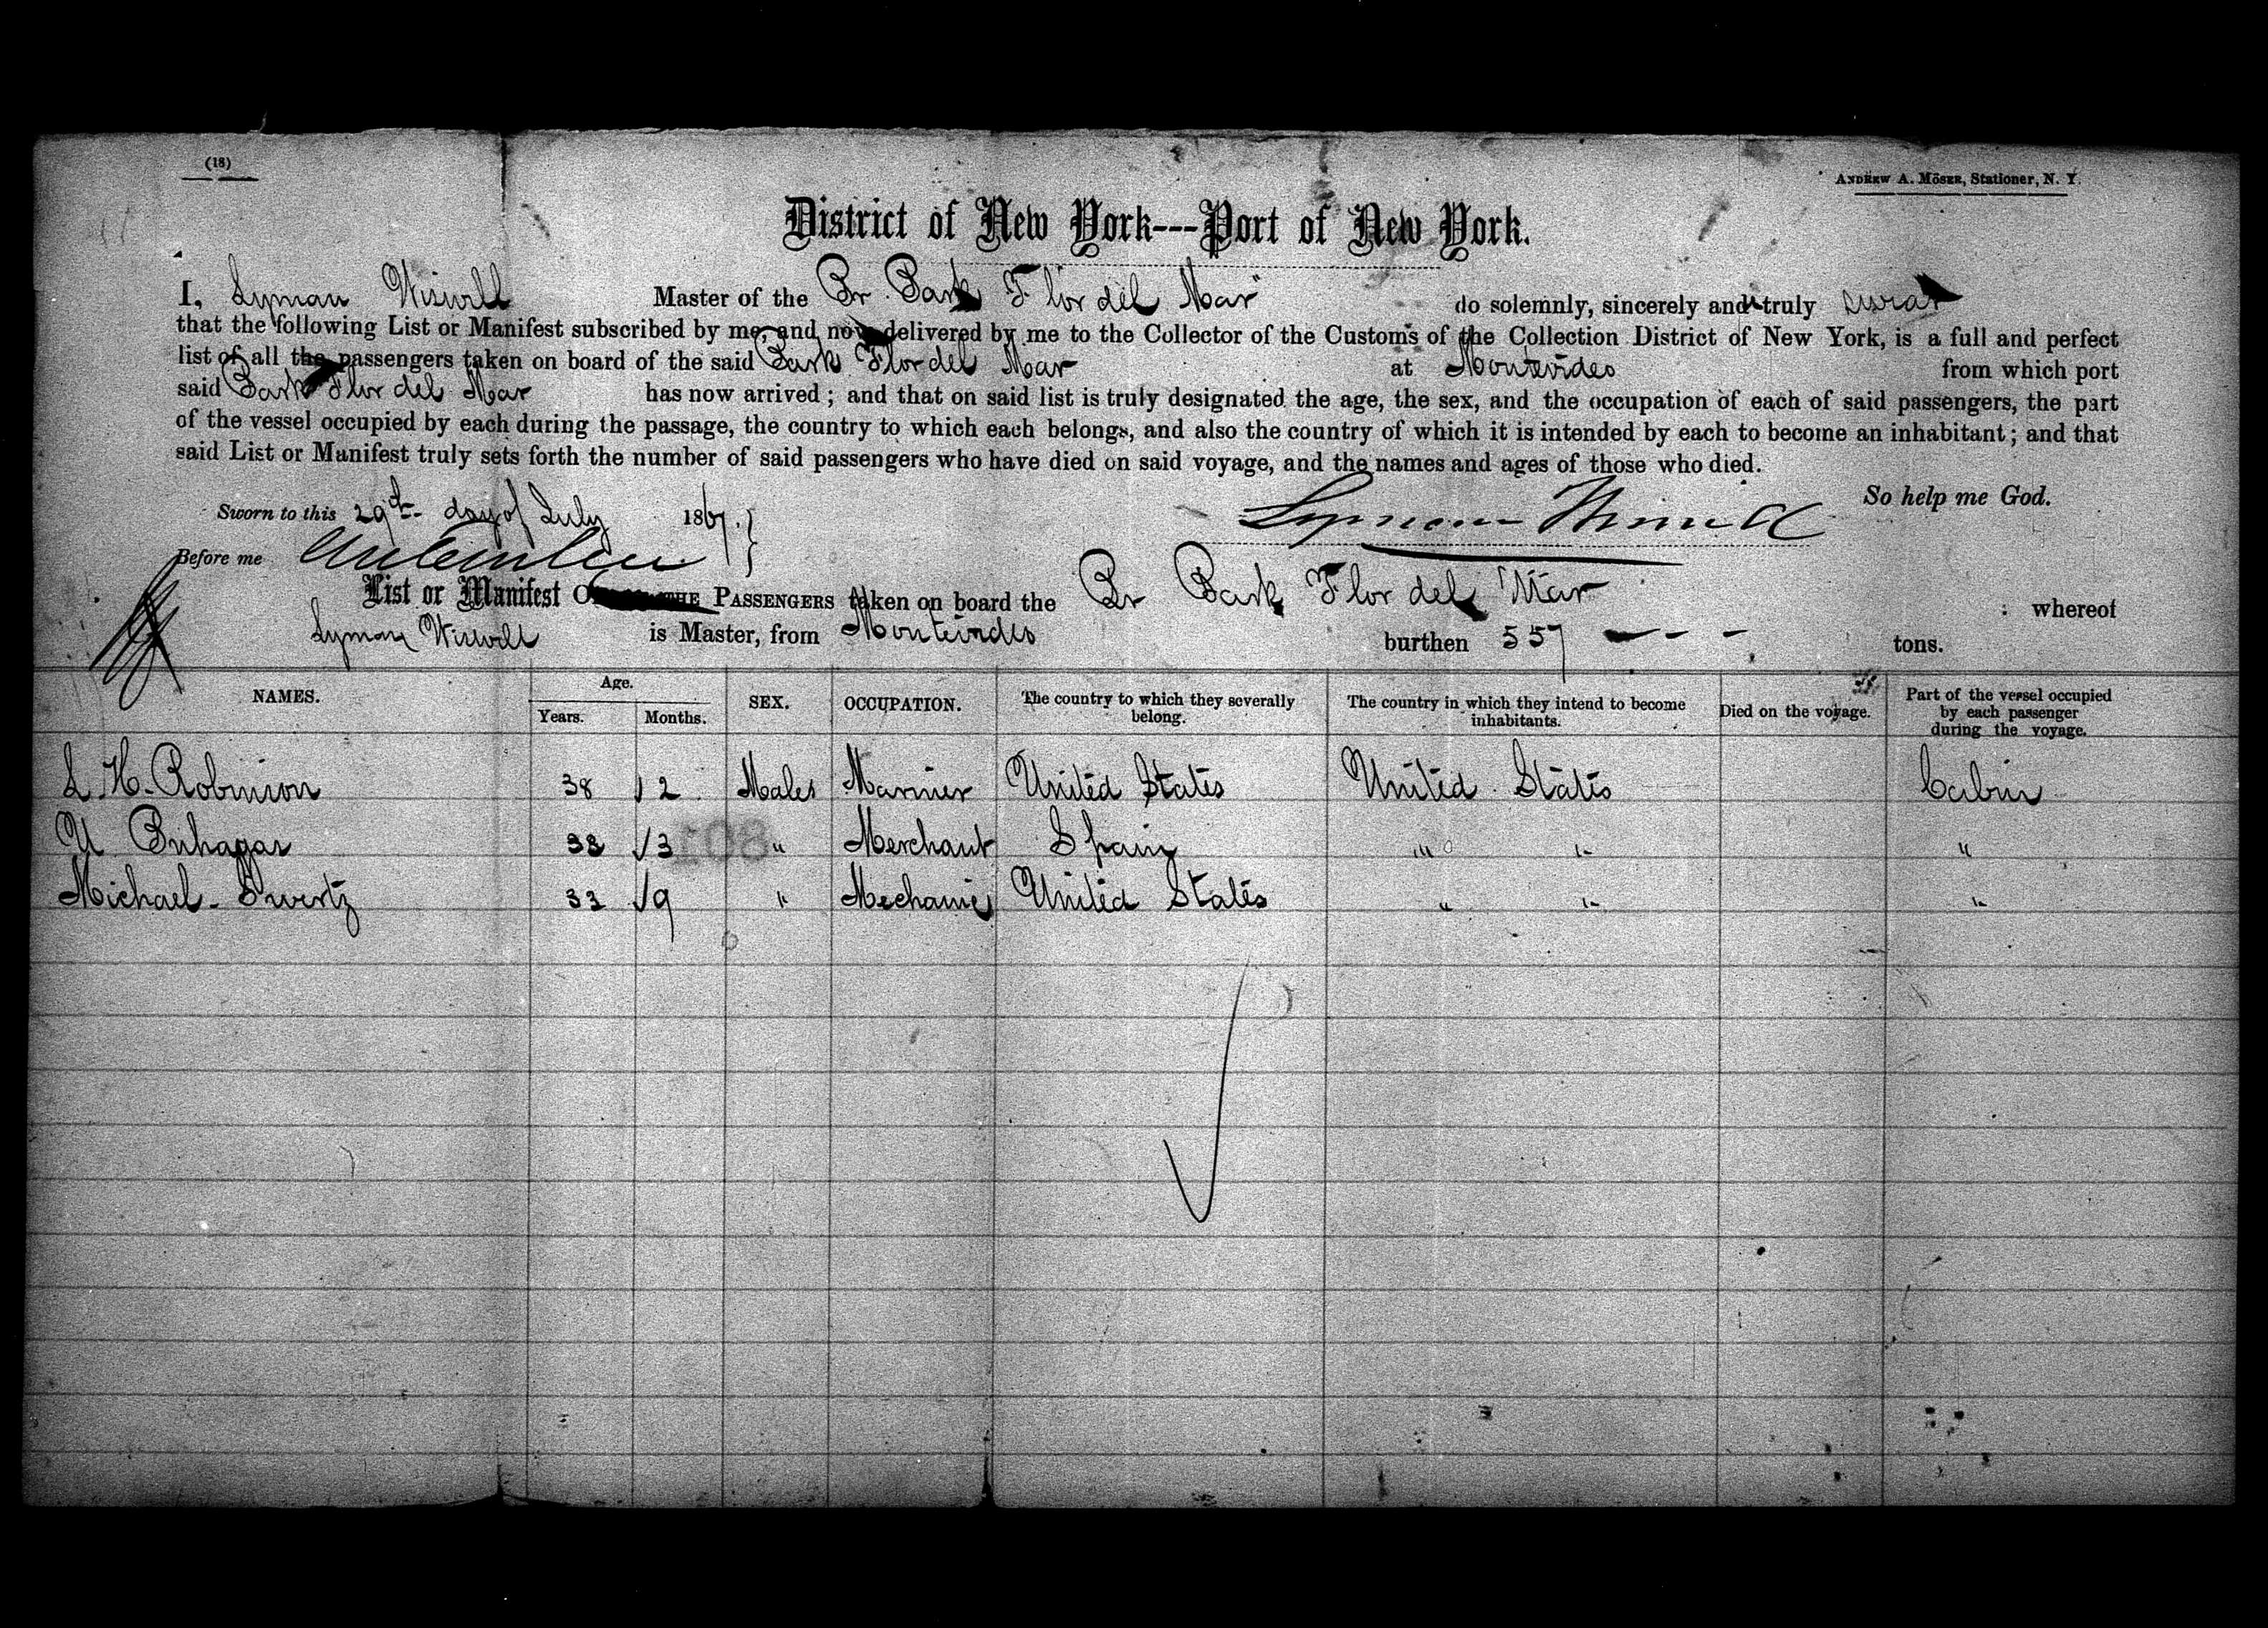 (18)
ANDREW A. MÖSER, Stationer, N. Y.
District of New York---Port of New York.
I, Lyman Wiswell Master of the Br. Bark Flor del Mar do solemnly, sincerely and truly swear
that the following List or Manifest subscribed by me, and now delivered by me to the Collector of the Customs of the Collection District of New York, is a full and perfect
list of all the passengers taken on board of the said Bark Flor del Mar at Montevideo from which port
said Bark Flor del Mar has now arrived; and that on said list is truly designated the age, the sex, and the occupation of each of said passengers, the part
of the vessel occupied by each during the passage, the country to which each belongs, and also the country of which it is intended by each to become an inhabitant; and that
said List or Manifest truly sets forth the number of said passengers who have died on said voyage, and the names and ages of those who died.
So help me God.
Sworn to this 29th day of July 1867.
Lyman Wiswell
Before me
List or Manifest OF THE PASSENGERS taken on board the Br Bark Flor del Mar : whereof
Lyman Wiswell is Master, from Montevideo burthen 557 - - - tons.
NAMES. Age. Years. Months. SEX. OCCUPATION. The country to which they severally belong. The country in which they intend to become inhabitants. Died on the voyage. Part of the vessel occupied by each passenger during the voyage.
L. H. Robinson 38 2 Males Mariner United States United States Cabin
38 3 " Merchant Spain " " "
Michael Swertz 33 9 " Mechanic United States " " "
108